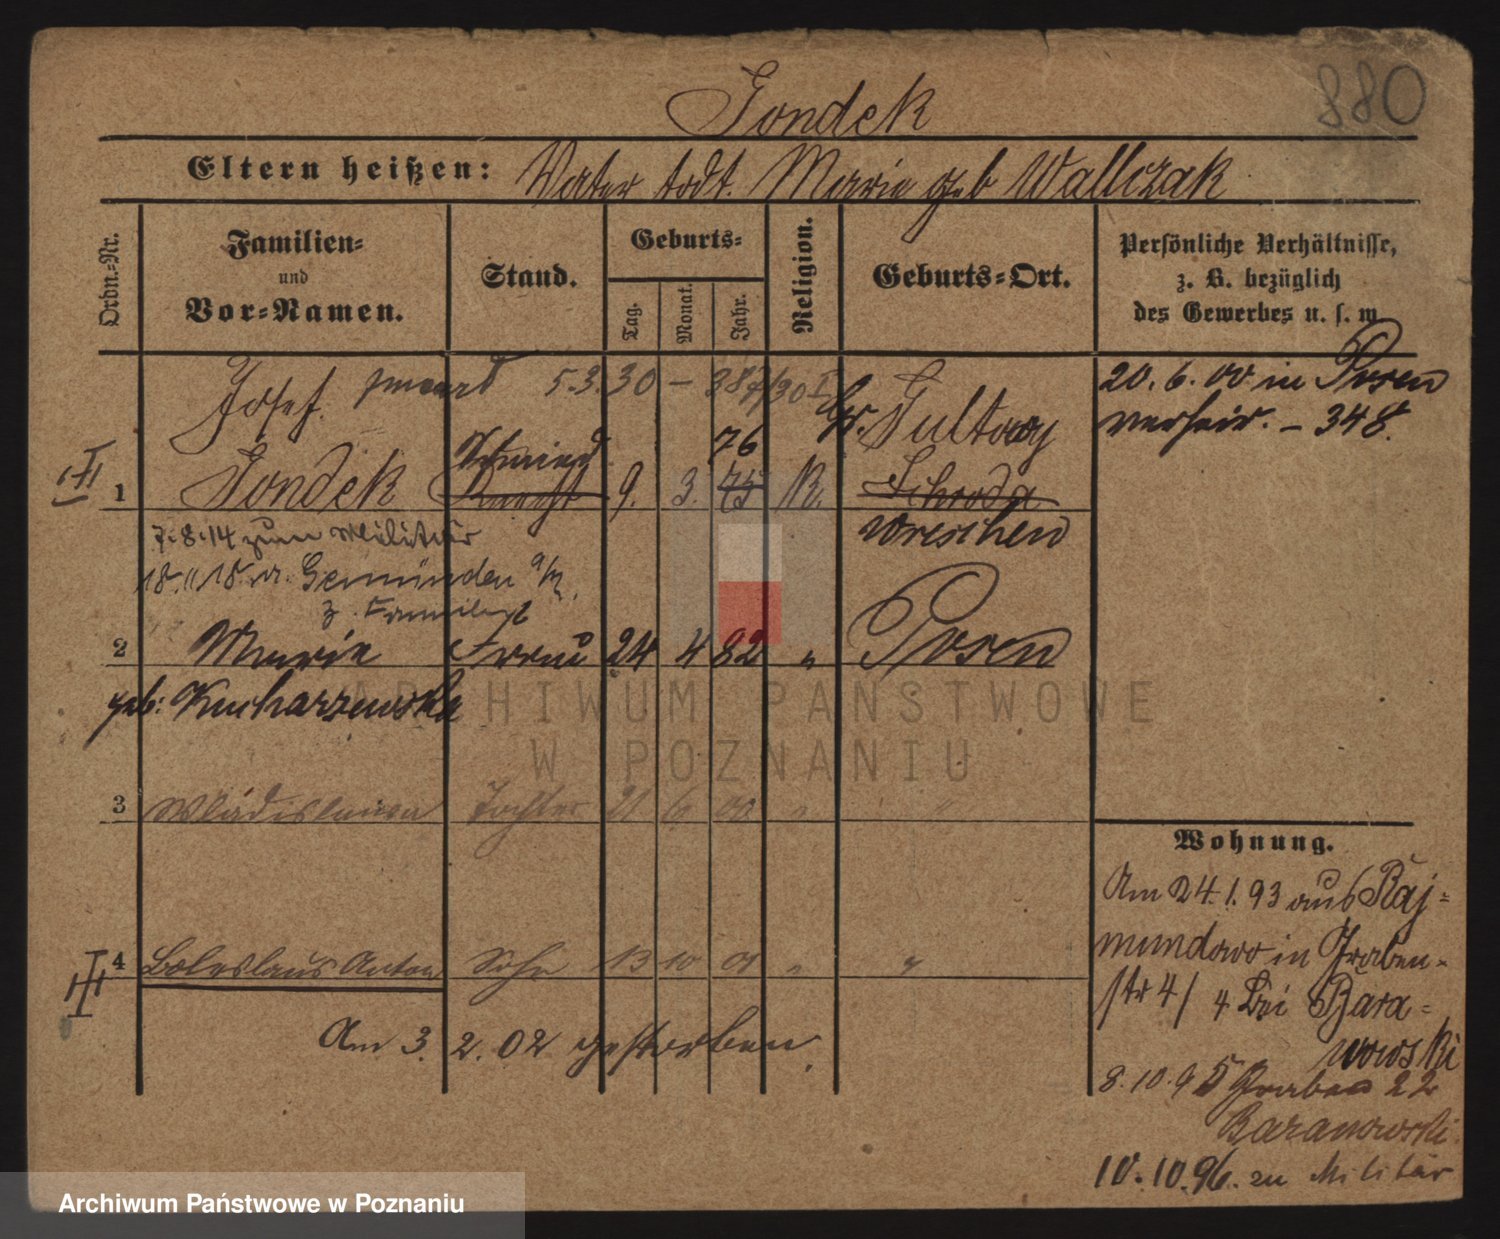 Jondek
880
Eltern heißen: Vater todt. Marie geb Wallczak
Ordn.-Nr.
Familien-
und
Vor-Namen.
Stand.
Geburts-
Tag.
Monat.
Jahr.
Religion.
Geburts-Ort.
Persönliche Verhältnisse,
z. B. bezüglich
des Gewerbes u. s. w.
Josef. 5.3.30
Gr. Gultowy
20. 6. 00 in Posen
verheir. - 348.
Schmied 76
1 Jondek Knecht 9. 3. 75 K. Schroda
Wreschen
7.8.14 zum Militär
18.11.18. v. Gemünden a/M.
2 Marie Frau 24 4 82 " Posen
geb: Kucharzewska
3 Wladislawa Tochter 21 6 00 " "
4 Boleslaus Anton Sohn 13 10 01 " "
Am 3. 2. 02 gestorben.
Wohnung.
Am 24.1.93 aus Raj-
mundowo in Graben-
str 4/4 bei Bara-
nowski
8.10.95 Graben 22
Baranowski
10.10.96. zu Militär
ARCHIWUM PAŃSTWOWE
W POZNANIU
Archiwum Państwowe w Poznaniu